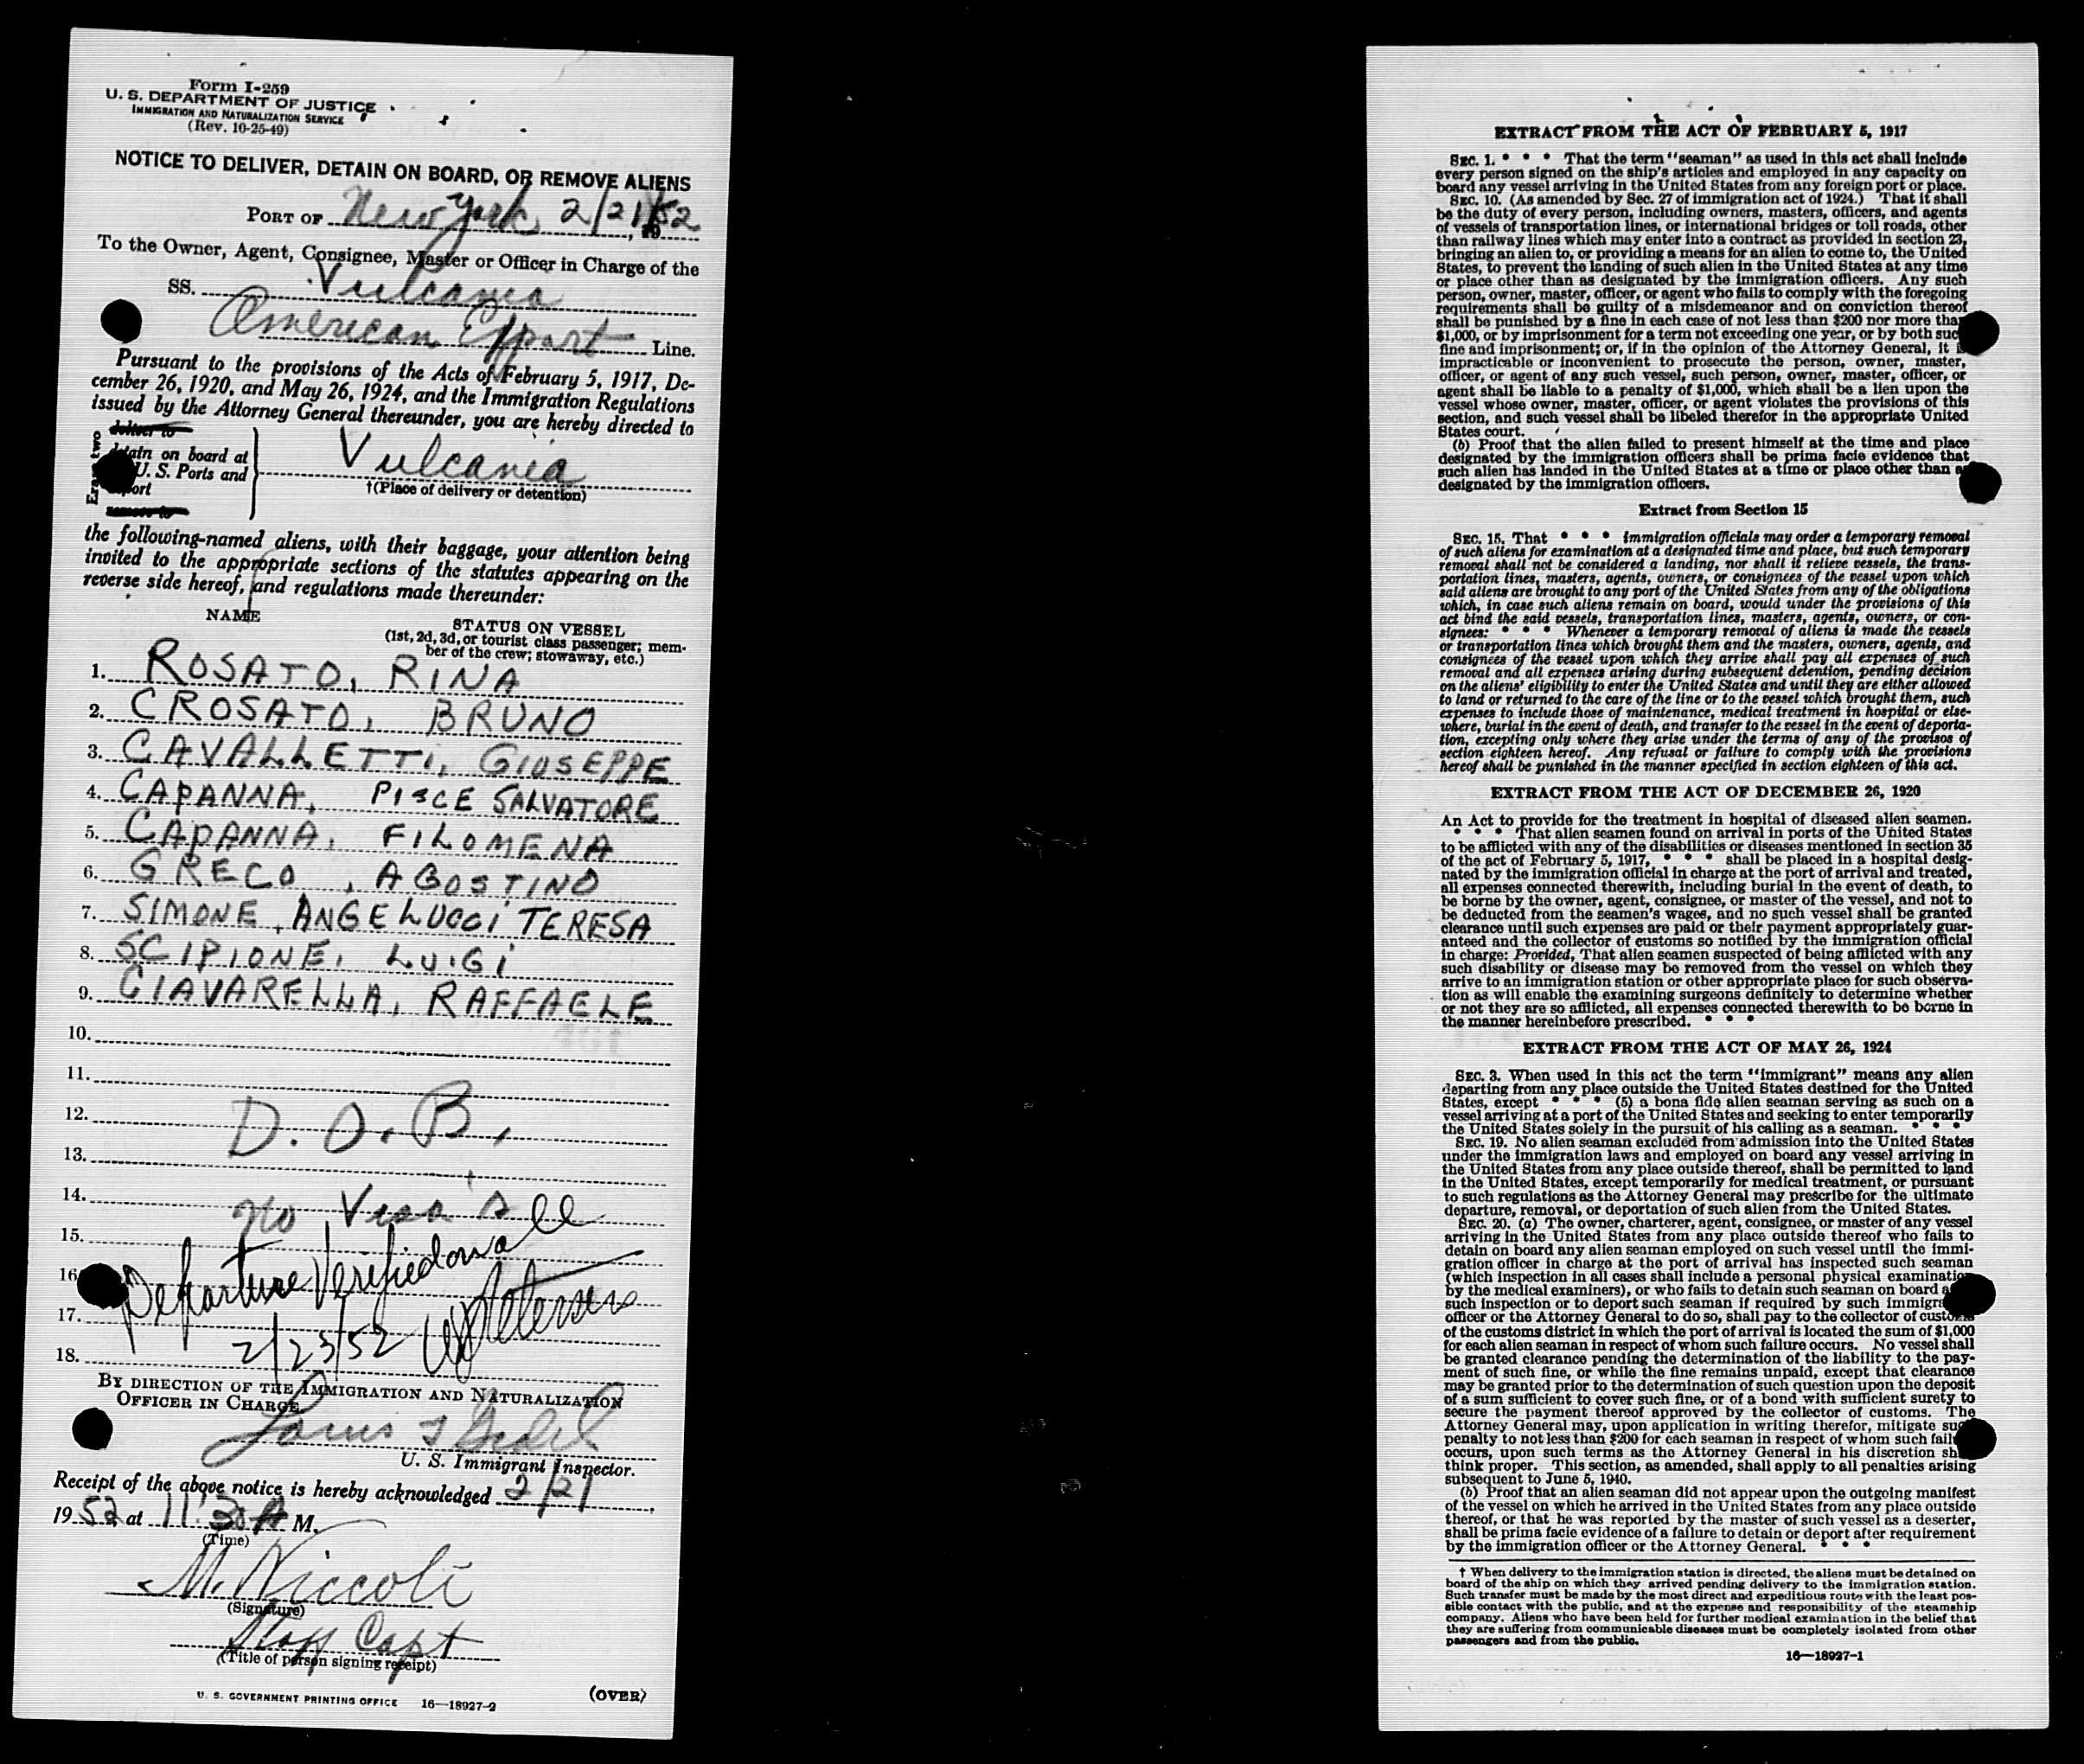 Form I-259
U. S. DEPARTMENT OF JUSTICE
IMMIGRATION AND NATURALIZATION SERVICE
(Rev. 10-25-49)
NOTICE TO DELIVER, DETAIN ON BOARD, OR REMOVE ALIENS
PORT OF New York 2/21/52
To the Owner, Agent, Consignee, Master or Officer in Charge of the
SS. Vulcania
American Export Line.
Pursuant to the provisions of the Acts of February 5, 1917, De-
cember 26, 1920, and May 26, 1924, and the Immigration Regulations
issued by the Attorney General thereunder, you are hereby directed to
deliver to
on board at
U. S. Ports and
Vulcania
†(Place of delivery or detention)
remove to
the following-named aliens, with their baggage, your attention being
invited to the appropriate sections of the statutes appearing on the
reverse side hereof, and regulations made thereunder:
NAME
STATUS ON VESSEL
(1st, 2d, 3d, or tourist class passenger; mem-
ber of the crew; stowaway, etc.)
1. ROSATO, RINA
2. CROSATO, BRUNO
3. CAVALLETTI, GIUSEPPE
4. CAPANNA, SALVATORE
5. CAPANNA, FILOMENA
6. GRECO, AGOSTINO
7. SIMONE, ANGELUCCI TERESA
8. SCIPIONE, LUIGI
9. CIAVARELLA, RAFFAELE
10.
11.
12. D.O.B.
13.
14. No Visa All
15.
16. Departure Verified on all
17. 2/23/52
18.
BY DIRECTION OF THE IMMIGRATION AND NATURALIZATION
OFFICER IN CHARGE
U. S. Immigrant Inspector.
Receipt of the above notice is hereby acknowledged 2/21,
1952 at 11:30 A M.
(Time)
M. Niccoli
(Signature)
Staff Capt
(Title of person signing receipt)
U. S. GOVERNMENT PRINTING OFFICE 16—18927-2
(OVER)
EXTRACT FROM THE ACT OF FEBRUARY 5, 1917
SEC. 1. * * * That the term "seaman" as used in this act shall include
every person signed on the ship's articles and employed in any capacity on
board any vessel arriving in the United States from any foreign port or place.
SEC. 10. (As amended by Sec. 27 of immigration act of 1924.) That it shall
be the duty of every person, including owners, masters, officers, and agents
of vessels of transportation lines, or international bridges or toll roads, other
than railway lines which may enter into a contract as provided in section 23,
bringing an alien to, or providing a means for an alien to come to, the United
States, to prevent the landing of such alien in the United States at any time
or place other than as designated by the immigration officers. Any such
person, owner, master, officer, or agent who fails to comply with the foregoing
requirements shall be guilty of a misdemeanor and on conviction thereof
shall be punished by a fine in each case of not less than $200 nor more than
$1,000, or by imprisonment for a term not exceeding one year, or by both such
fine and imprisonment; or, if in the opinion of the Attorney General, it is
impracticable or inconvenient to prosecute the person, owner, master,
officer, or agent of any such vessel, such person, owner, master, officer, or
agent shall be liable to a penalty of $1,000, which shall be a lien upon the
vessel whose owner, master, officer, or agent violates the provisions of this
section, and such vessel shall be libeled therefor in the appropriate United
States court.
(b) Proof that the alien failed to present himself at the time and place
designated by the immigration officers shall be prima facie evidence that
such alien has landed in the United States at a time or place other than as
designated by the immigration officers.
Extract from Section 15
SEC. 15. That * * * immigration officials may order a temporary removal
of such aliens for examination at a designated time and place, but such temporary
removal shall not be considered a landing, nor shall it relieve vessels, the trans-
portation lines, masters, agents, owners, or consignees of the vessel upon which
said aliens are brought to any port of the United States from any of the obligations
which, in case such aliens remain on board, would under the provisions of this
act bind the said vessels, transportation lines, masters, agents, owners, or con-
signees: * * * Whenever a temporary removal of aliens is made the vessels
or transportation lines which brought them and the masters, owners, agents, and
consignees of the vessel upon which they arrive shall pay all expenses of such
removal and all expenses arising during subsequent detention, pending decision
on the aliens' eligibility to enter the United States and until they are either allowed
to land or returned to the care of the line or to the vessel which brought them, such
expenses to include those of maintenance, medical treatment in hospital or else-
where, burial in the event of death, and transfer to the vessel in the event of deporta-
tion, excepting only where they arise under the terms of any of the provisos of
section eighteen hereof. Any refusal or failure to comply with the provisions
hereof shall be punished in the manner specified in section eighteen of this act.
EXTRACT FROM THE ACT OF DECEMBER 26, 1920
An Act to provide for the treatment in hospital of diseased alien seamen.
* * * That alien seamen found on arrival in ports of the United States
to be afflicted with any of the disabilities or diseases mentioned in section 35
of the act of February 5, 1917, * * * shall be placed in a hospital desig-
nated by the immigration official in charge at the port of arrival and treated,
all expenses connected therewith, including burial in the event of death, to
be borne by the owner, agent, consignee, or master of the vessel, and not to
be deducted from the seamen's wages, and no such vessel shall be granted
clearance until such expenses are paid or their payment appropriately guar-
anteed and the collector of customs so notified by the immigration official
in charge: Provided, That alien seamen suspected of being afflicted with any
such disability or disease may be removed from the vessel on which they
arrive to an immigration station or other appropriate place for such observa-
tion as will enable the examining surgeons definitely to determine whether
or not they are so afflicted, all expenses connected therewith to be borne in
the manner hereinbefore prescribed. * * *
EXTRACT FROM THE ACT OF MAY 26, 1924
SEC. 3. When used in this act the term "immigrant" means any alien
departing from any place outside the United States destined for the United
States, except * * * (5) a bona fide alien seaman serving as such on a
vessel arriving at a port of the United States and seeking to enter temporarily
the United States solely in the pursuit of his calling as a seaman. * * *
SEC. 19. No alien seaman excluded from admission into the United States
under the immigration laws and employed on board any vessel arriving in
the United States from any place outside thereof, shall be permitted to land
in the United States, except temporarily for medical treatment, or pursuant
to such regulations as the Attorney General may prescribe for the ultimate
departure, removal, or deportation of such alien from the United States.
SEC. 20. (a) The owner, charterer, agent, consignee, or master of any vessel
arriving in the United States from any place outside thereof who fails to
detain on board any alien seaman employed on such vessel until the immi-
gration officer in charge at the port of arrival has inspected such seaman
(which inspection in all cases shall include a personal physical examination
by the medical examiners), or who fails to detain such seaman on board a
such inspection or to deport such seaman if required by such immigra
officer or the Attorney General to do so, shall pay to the collector of customs
of the customs district in which the port of arrival is located the sum of $1,000
for each alien seaman in respect of whom such failure occurs. No vessel shall
be granted clearance pending the determination of the liability to the pay-
ment of such fine, or while the fine remains unpaid, except that clearance
may be granted prior to the determination of such question upon the deposit
of a sum sufficient to cover such fine, or of a bond with sufficient surety to
secure the payment thereof approved by the collector of customs. The
Attorney General may, upon application in writing therefor, mitigate such
penalty to not less than $200 for each seaman in respect of whom such failu
occurs, upon such terms as the Attorney General in his discretion sh
think proper. This section, as amended, shall apply to all penalties arising
subsequent to June 5, 1940.
(b) Proof that an alien seaman did not appear upon the outgoing manifest
of the vessel on which he arrived in the United States from any place outside
thereof, or that he was reported by the master of such vessel as a deserter,
shall be prima facie evidence of a failure to detain or deport after requirement
by the immigration officer or the Attorney General. * * *
† When delivery to the immigration station is directed, the aliens must be detained on
board of the ship on which they arrived pending delivery to the immigration station.
Such transfer must be made by the most direct and expeditious route with the least pos-
sible contact with the public, and at the expense and responsibility of the steamship
company. Aliens who have been held for further medical examination in the belief that
they are suffering from communicable diseases must be completely isolated from other
passengers and from the public.
16—18927-1